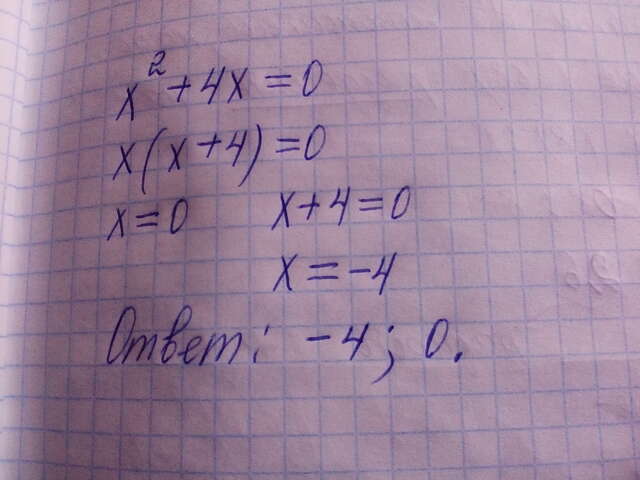 x² + 4x = 0
x(x + 4) = 0
x = 0 x + 4 = 0
x = -4
Ответ: -4; 0.